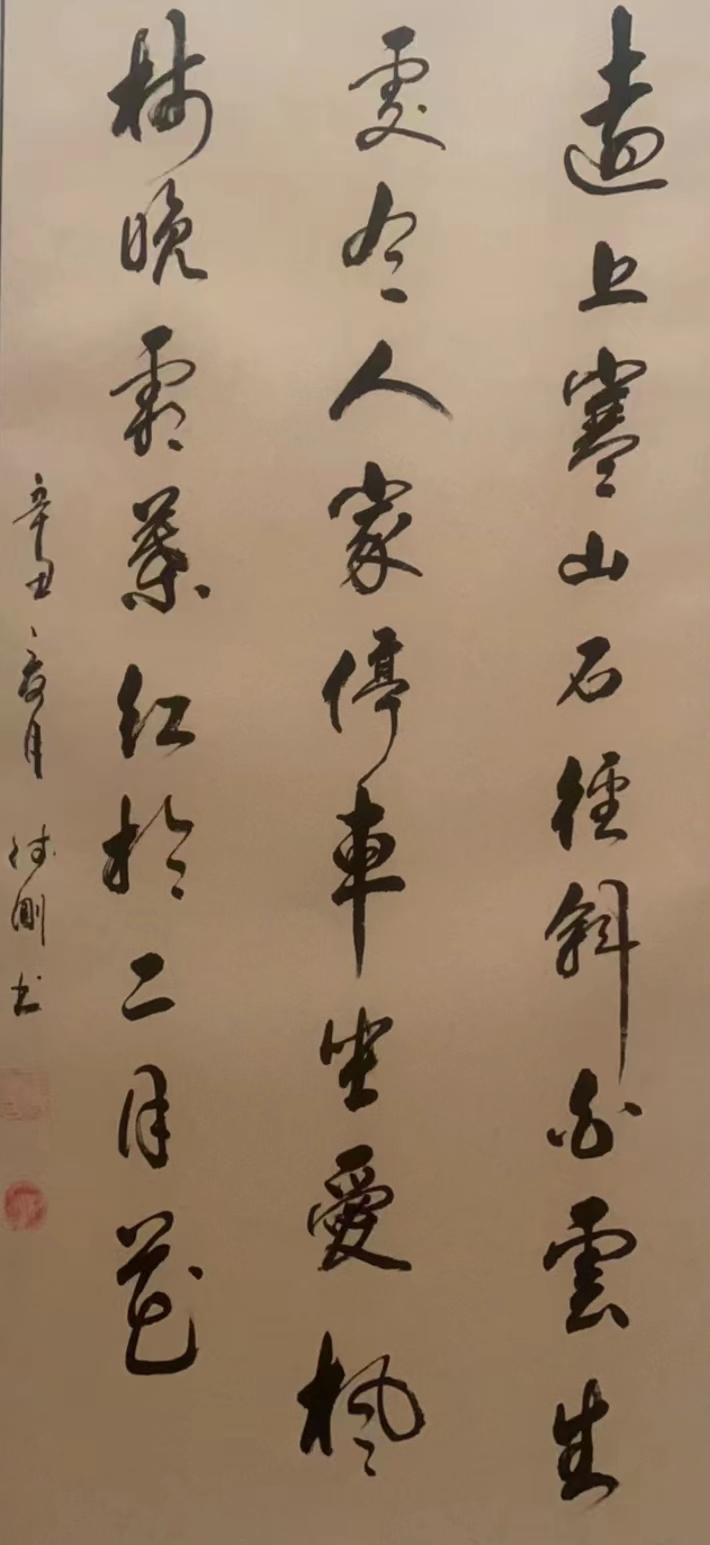 遠上寒山石徑斜白雲生
處有人家停車坐愛楓
林晚霜葉紅於二月花
辛丑夏月 書